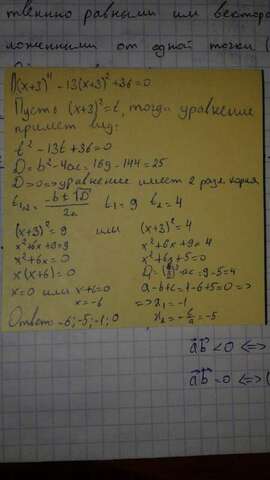 твенно равными им вектора
ложенными от одной точки (
(x+3)⁴ - 13(x+3)² + 36 = 0
Пусть (x+3)² = t, тогда уравнение
примет вид:
t² - 13t + 36 = 0
D = b² - 4ac = 169 - 144 = 25
D > 0 => уравнение имеет 2 разл. корня
t₁,₂ = (-b ± √D)/2a t₁ = 9 t₂ = 4
(x+3)² = 9 или (x+3)² = 4
x² + 6x + 9 = 9 x² + 6x + 9 = 4
x² + 6x = 0 x² + 6x + 5 = 0
x(x+6) = 0 D = (b/2)² - ac = 9 - 5 = 4
x = 0 или x + 6 = 0 a - b + c = 1 - 6 + 5 = 0 =>
x = -6 => x₁ = -1
Ответ: -6; -5; -1; 0 x₂ = -c/a = -5
ab < 0 <=>
ab = 0 <=> (